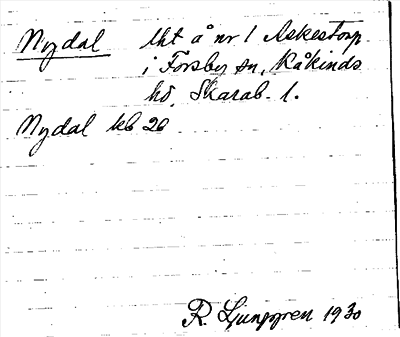 Nydal lht å nr 1 Askestorp
i Forsby sn, Kåkinds
hd, Skarab. l.
Nydal kb 20
R. Ljunggren 1930